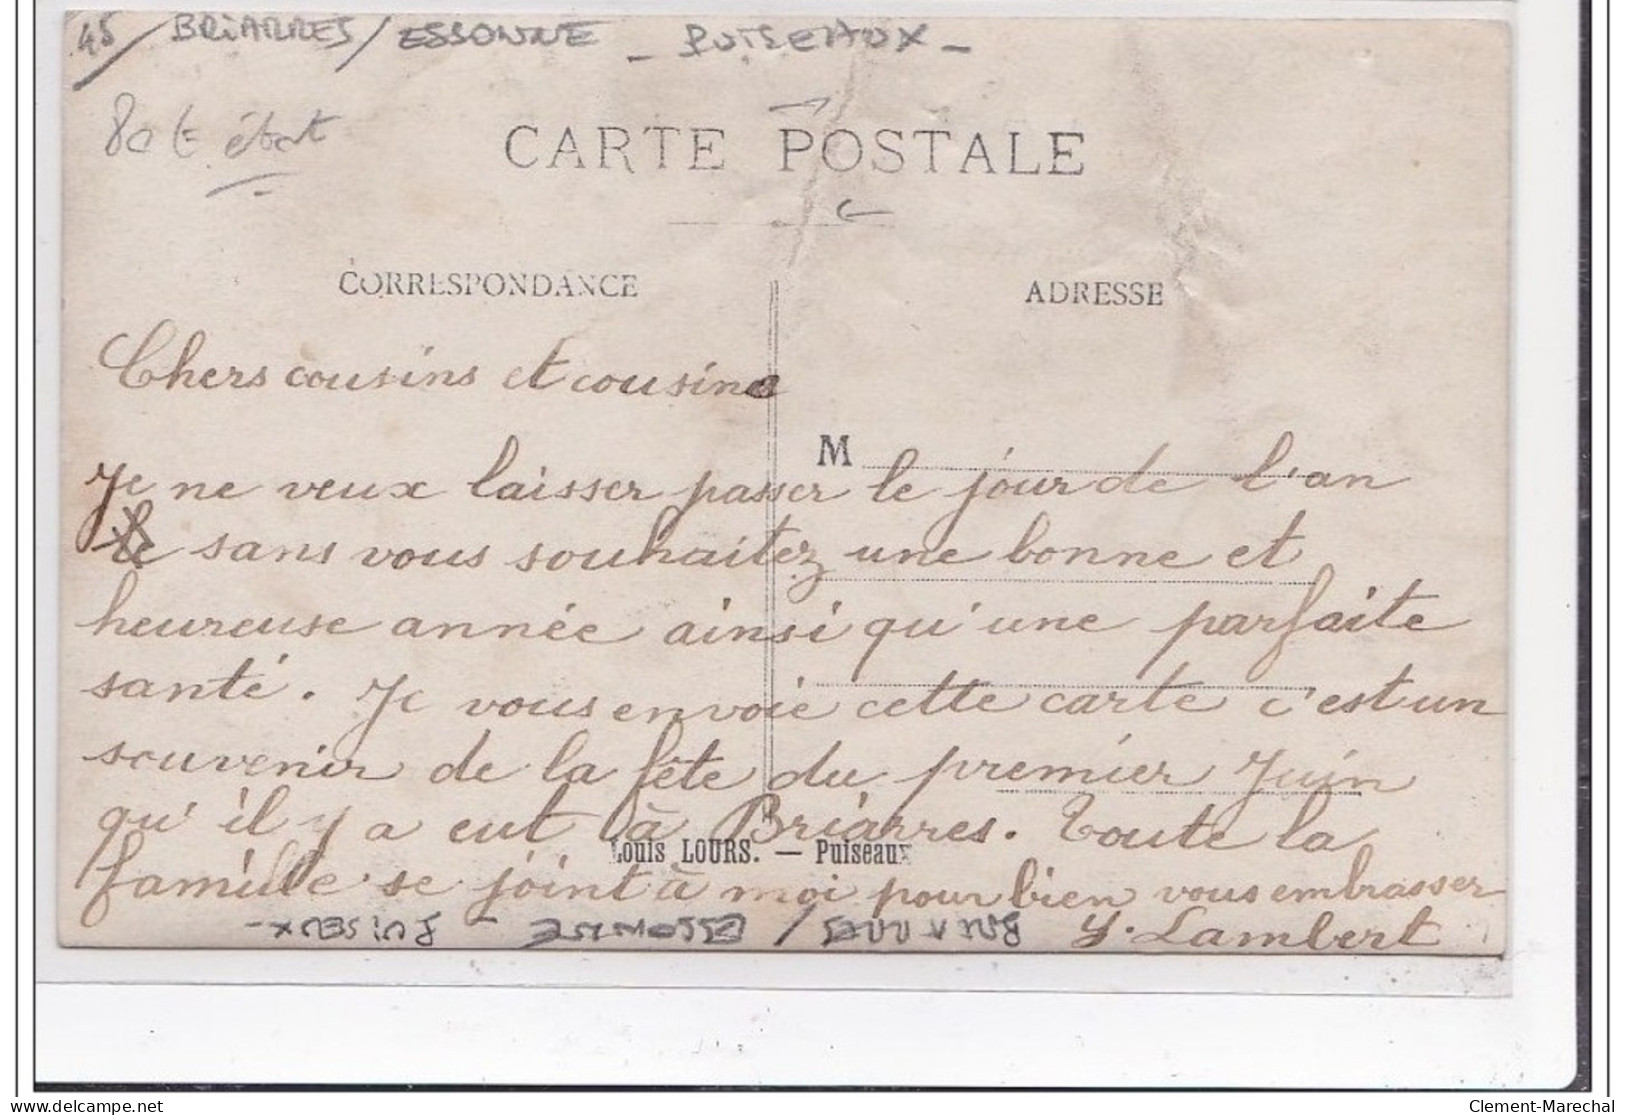 45 / BRIARRES / ESSONNE - PUISEAUX -
80 € état
CARTE POSTALE
CORRESPONDANCE
ADRESSE
Chers cousins et cousine
M
Je ne veux laisser passer le jour de l'an
sans vous souhaitez une bonne et
heureuse année ainsi qu'une parfaite
santé. Je vous envoie cette carte c'est un
souvenir de la fête du premier Juin
qu'il y a eut à Briarres. Toute la
Louis LOURS. — Puiseaux
famille se joint à moi pour bien vous embrasser
Y. Lambert
BRIARRES / ESSONNE - PUISEAUX -
Clement-Marechal